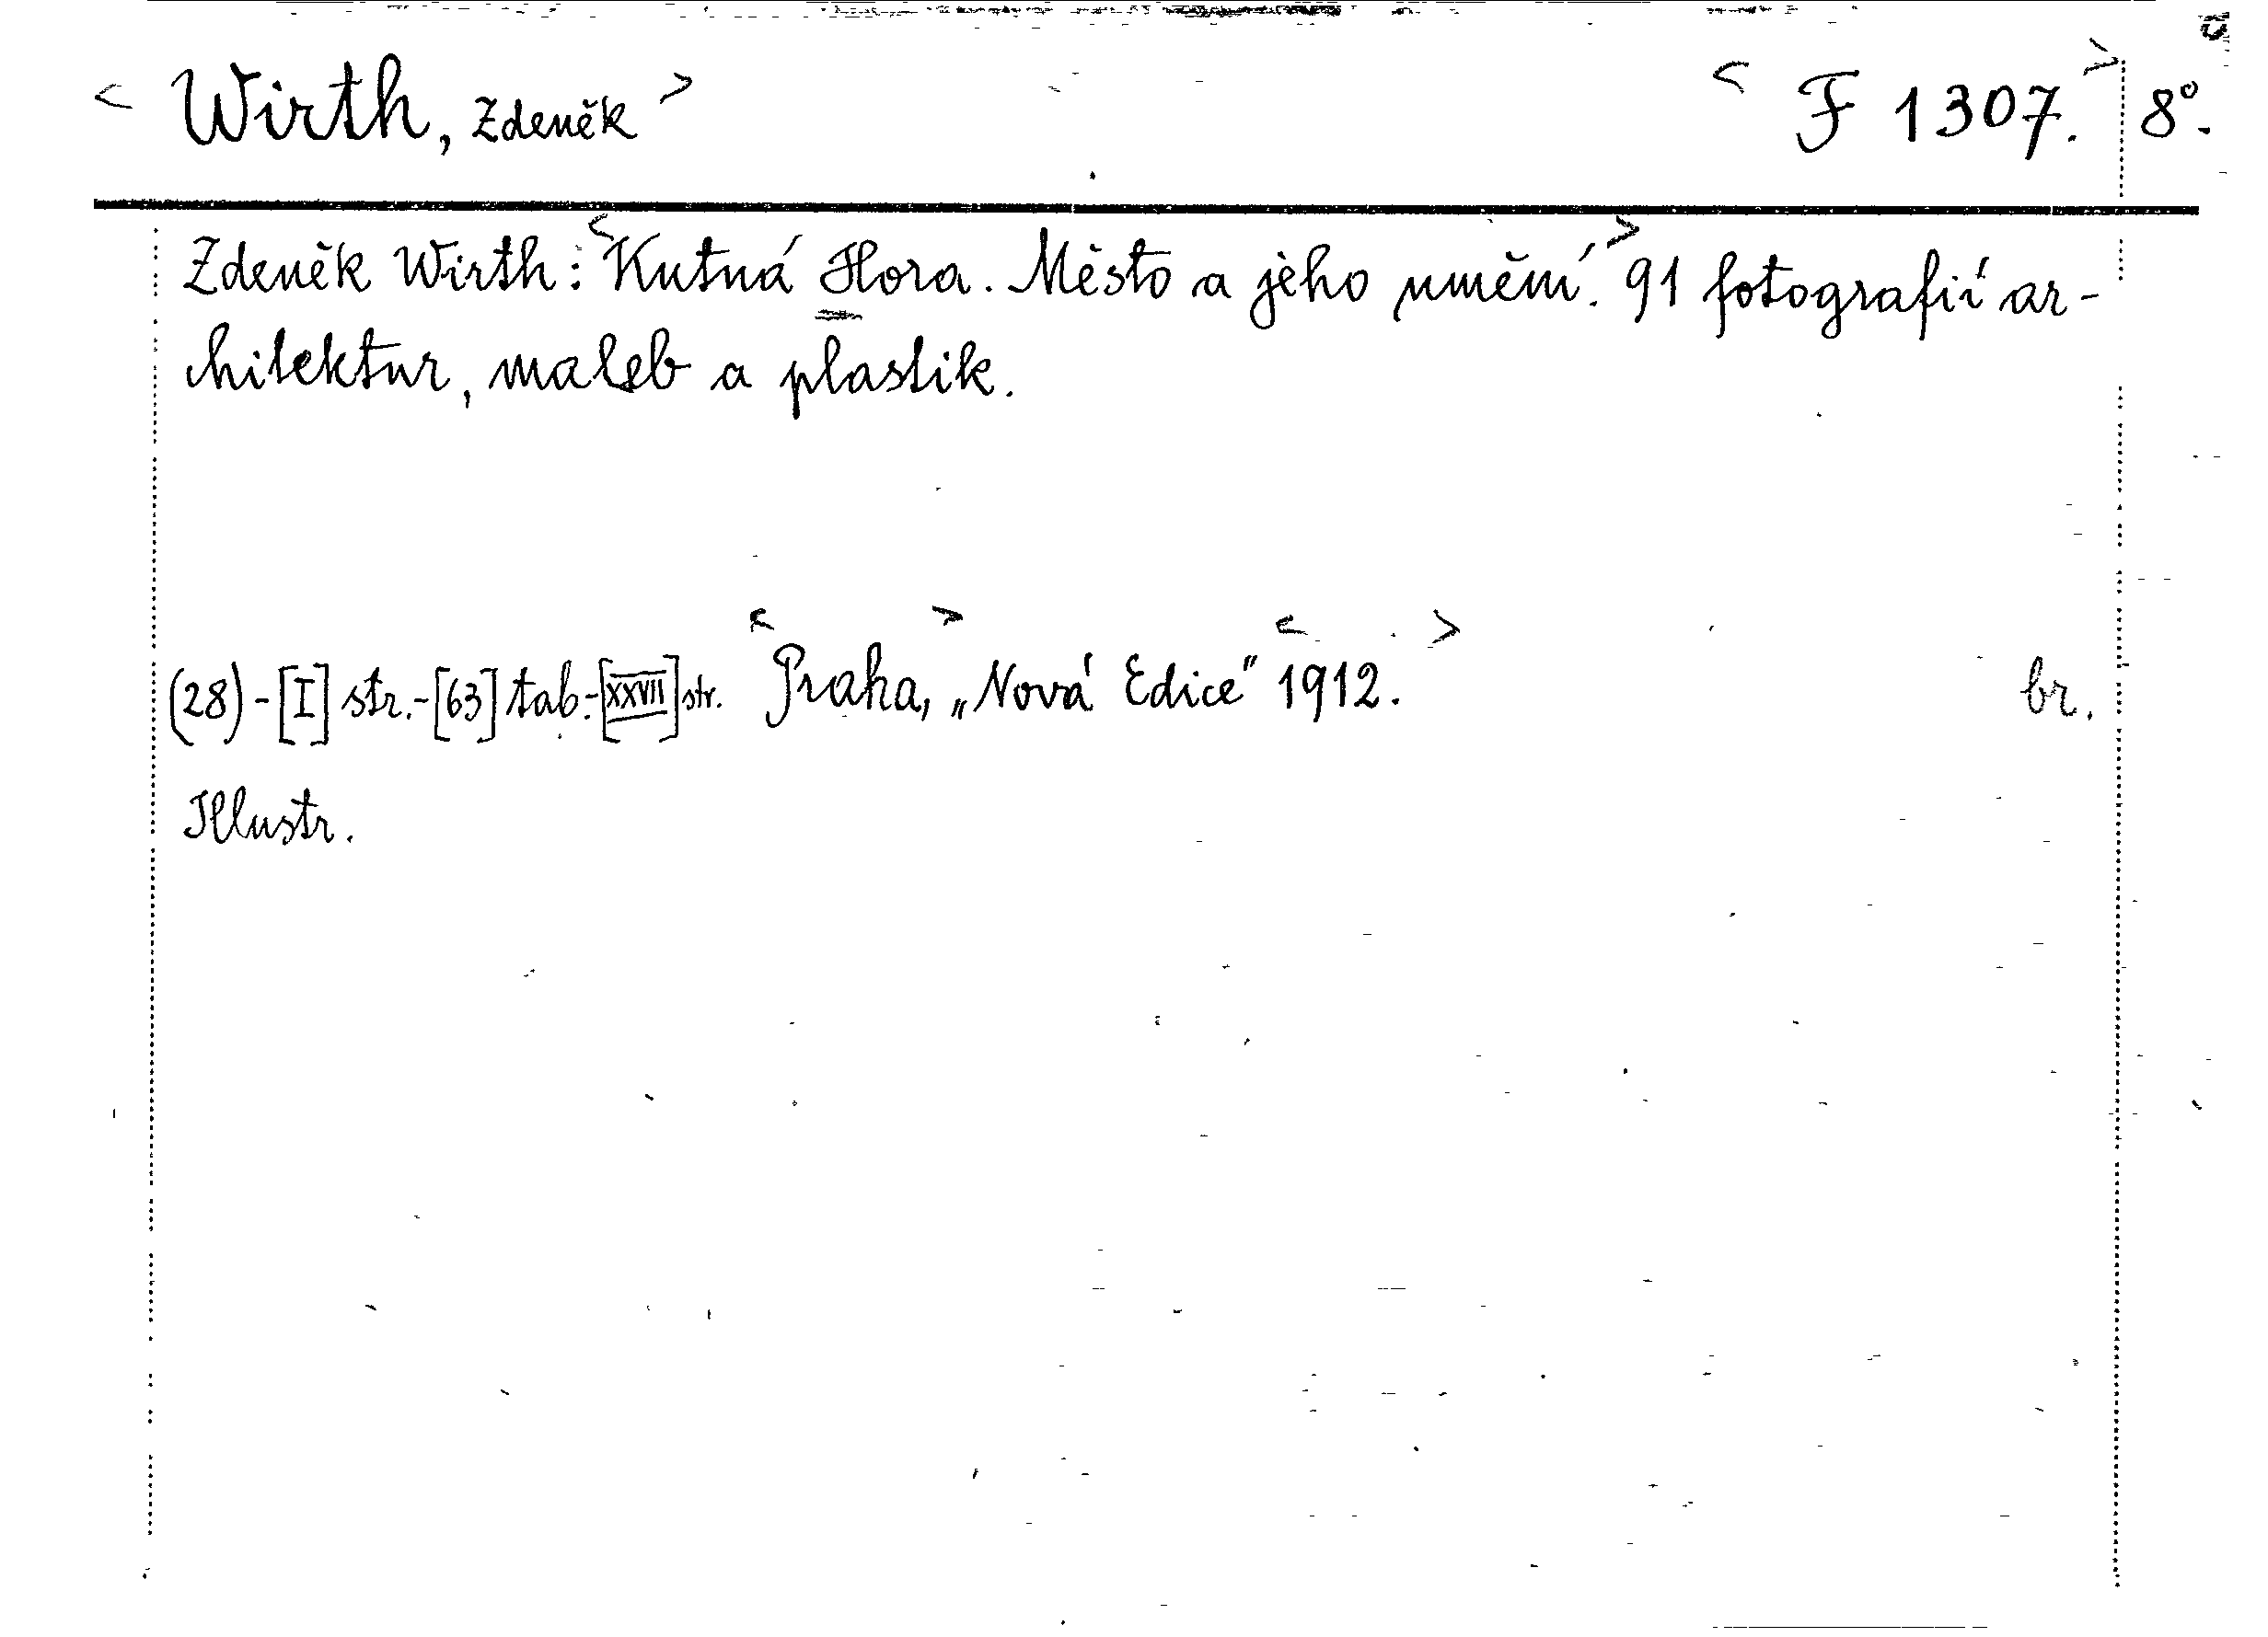 < Wirth, Zdeněk > < F 1307. > 8°.
Zdeněk Wirth: <Kutná Hora. Město a jeho umění.> 91 fotografií ar-
chitektur, maleb a plastik.
(28) - [I] str. - [63] tab. - [XXVII] str. <Praha>, „Nová Edice" <1912.> br.
Illustr.